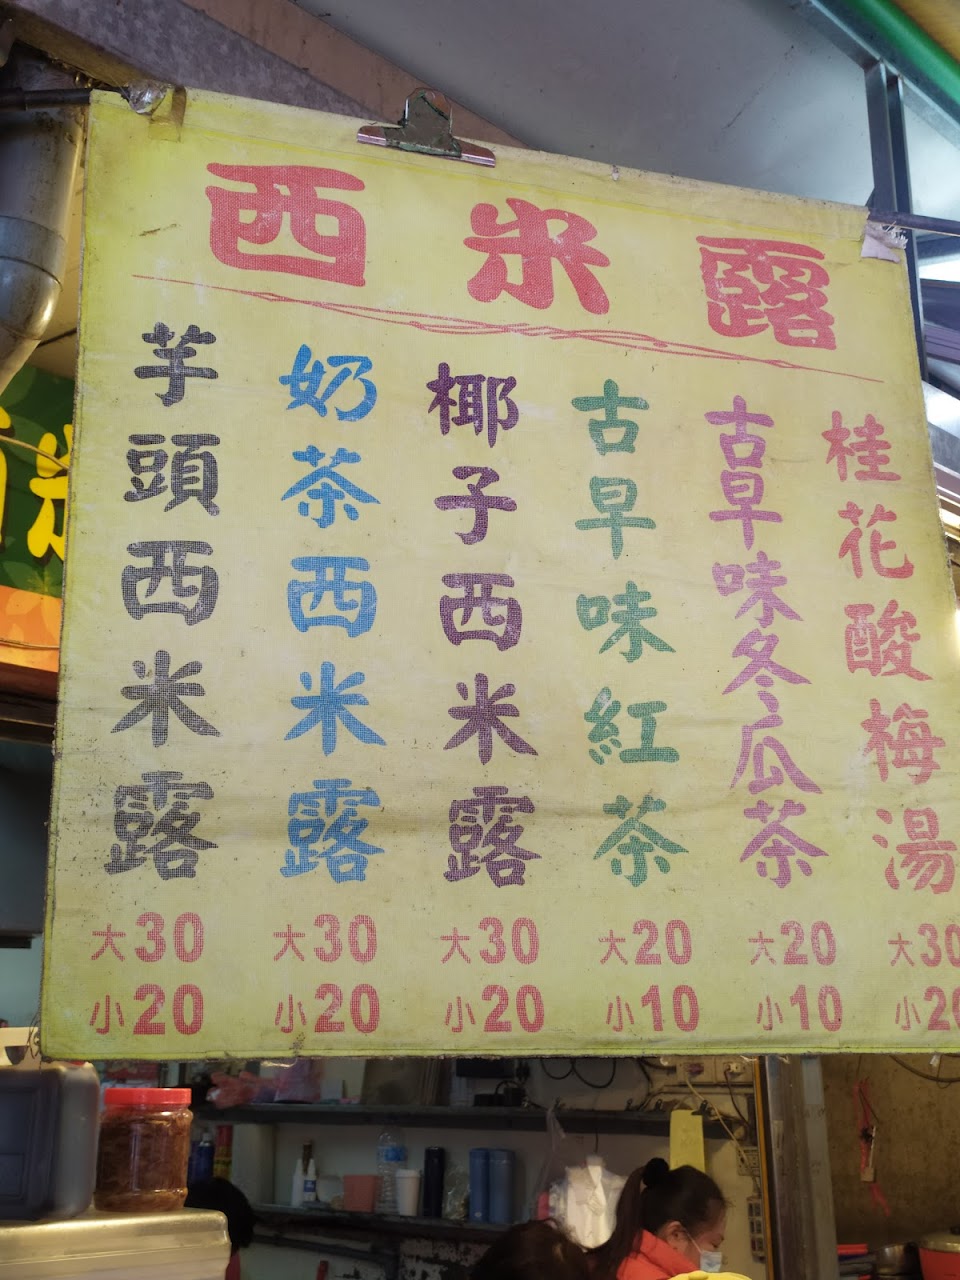 西米露
芋頭西米露
大30
小20
奶茶西米露
大30
小20
椰子西米露
大30
小20
古早味紅茶
大20
小10
古早味冬瓜茶
大20
小10
桂花酸梅湯
大30
小20